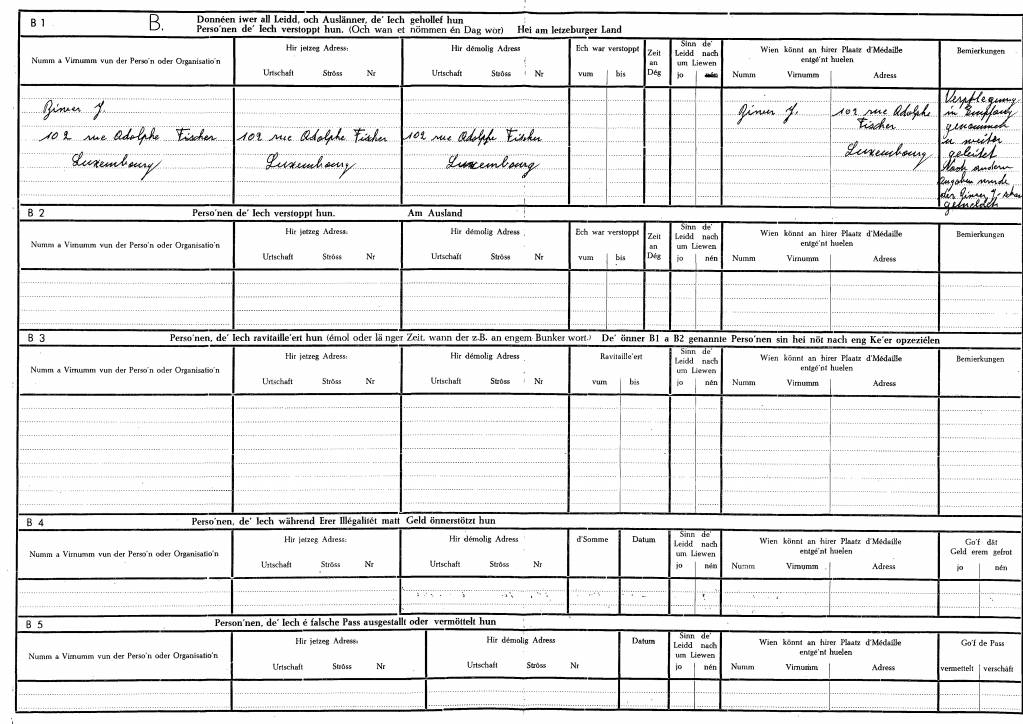 B 1 B. Donnéen iwer all Leidd, och Auslänner, de' Iech gehollef hun
Perso'nen de' Iech verstoppt hun. (Och wan et nömmen én Dag wor) Hei am letzeburger Land
Numm a Virnumm vun der Perso'n oder Organisatio'n
Hir jetzeg Adress:
Urtschaft Ströss Nr
Hir démolig Adress
Urtschaft Ströss Nr
Ech war verstoppt
vum bis
Zeit an Dég
Sinn de' Leidd nach um Liewen
jo nén
Wien könnt an hirer Plaatz d'Médaille
entgé'nt huelen
Numm Virnumm Adress
Bemierkungen
J.
102 rue Adolphe Fischer
Luxembourg
102 rue Adolphe Fischer
Luxembourg
102 rue Adolphe Fischer
Luxembourg
J.
102 rue Adolphe
Fischer
Luxembourg
Verpflegung
in Empfang
genommen
u weiter
geleitet
Nach andern
Angaben wurde
gemeldet
B 2 Perso'nen de' Iech verstoppt hun. Am Ausland
Numm a Virnumm vun der Perso'n oder Organisatio'n
Hir jetzeg Adress:
Urtschaft Ströss Nr
Hir démolig Adress
Urtschaft Ströss Nr
Ech war verstoppt
vum bis
Zeit an Dég
Sinn de' Leidd nach um Liewen
jo nén
Wien könnt an hirer Plaatz d'Médaille
entgé'nt huelen
Numm Virnumm Adress
Bemierkungen
B 3 Perso'nen, de' Iech ravitaille'ert hun (émol oder länger Zeit. wann der z.B. an engem Bunker wort.) De' önner B1 a B2 genannte Perso'nen sin hei nöt nach eng Ke'er opzeziélen
Numm a Virnumm vun der Perso'n oder Organisatio'n
Hir jetzeg Adress:
Urtschaft Ströss Nr
Hir démolig Adress
Urtschaft Ströss Nr
Ravitaille'ert
vum bis
Sinn de' Leidd nach um Liewen
jo nén
Wien könnt an hirer Plaatz d'Médaille
entgé'nt huelen
Numm Virnumm Adress
Bemierkungen
B 4 Perso'nen, de' Iech während Erer Illégalitét matt Geld önnerstötzt hun
Numm a Virnumm vun der Perso'n oder Organisatio'n
Hir jetzeg Adress:
Urtschaft Ströss Nr
Hir démolig Adress:
Urtschaft Ströss Nr
d'Somme
Datum
Sinn de' Leidd nach um Liewen
jo nén
Wien könnt an hirer Plaatz d'Médaille
entgé'nt huelen
Numm Virnumm Adress
Go'f dât
Geld erem gefrot
jo nén
B 5 Person'nen, de' Iech é falsche Pass ausgestallt oder vermöttelt hun
Numm a Virnumm vun der Perso'n oder Organisatio'n
Hir jetzeg Adress:
Urtschaft Ströss Nr
Hir démolig Adress:
Urtschaft Ströss Nr
Datum
Sinn de' Leidd nach um Liewen
jo nén
Wien könnt an hirer Plaatz d'Médaille
entgé'nt huelen
Numm Virnumm Adress
Go'f de Pass
vermettelt verschäft